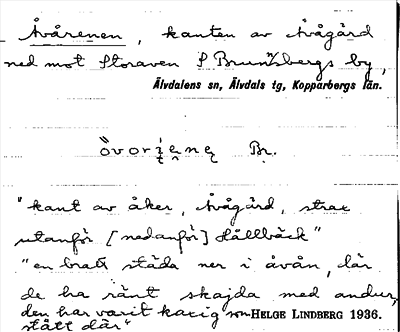 Åvårenen, kanten av Åvågärd
ned mot Storaven S Brunnsbergs by,
Älvdalens sn, Älvdals tg, Kopparbergs län.
Br.
"kant av åker, Åvågärd, strax
utanför [nedanför] Hållbäck"
"en bratt städa ner i åvån, där
de ha ränt skajda med andur,
den har varit karig som HELGE LINDBERG 1936.
stått där"